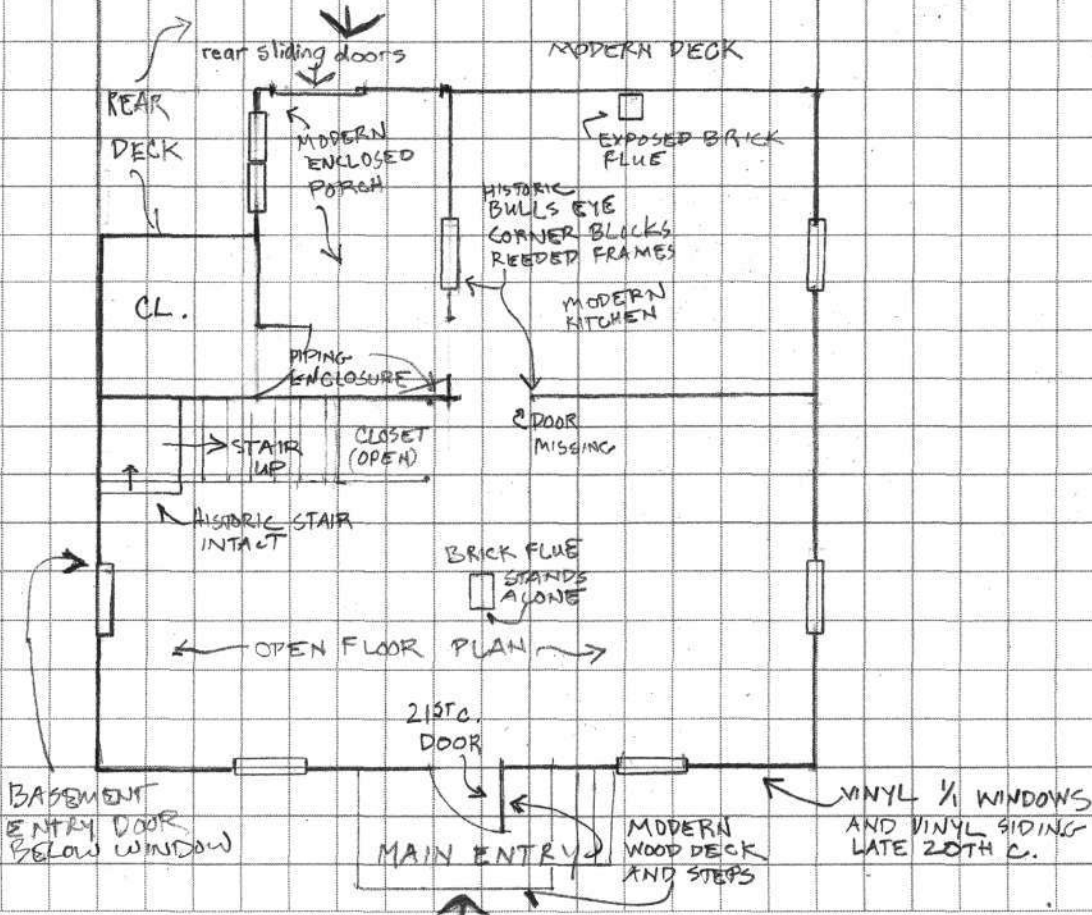 rear sliding doors
MODERN DECK
REAR
DECK
MODERN
ENCLOSED
PORCH
EXPOSED BRICK
FLUE
HISTORIC
BULLS EYE
CORNER BLOCKS
REEDED FRAMES
CL.
MODERN
KITCHEN
PIPING
ENCLOSURE
DOOR
MISSING
STAIR
UP
CLOSET
(OPEN)
HISTORIC STAIR
INTACT
BRICK FLUE
STANDS
ALONE
OPEN FLOOR PLAN
21ST C.
DOOR
BASEMENT
ENTRY DOOR
BELOW WINDOW
MAIN ENTRY
MODERN
WOOD DECK
AND STEPS
VINYL 1/1 WINDOWS
AND VINYL SIDING
LATE 20TH C.